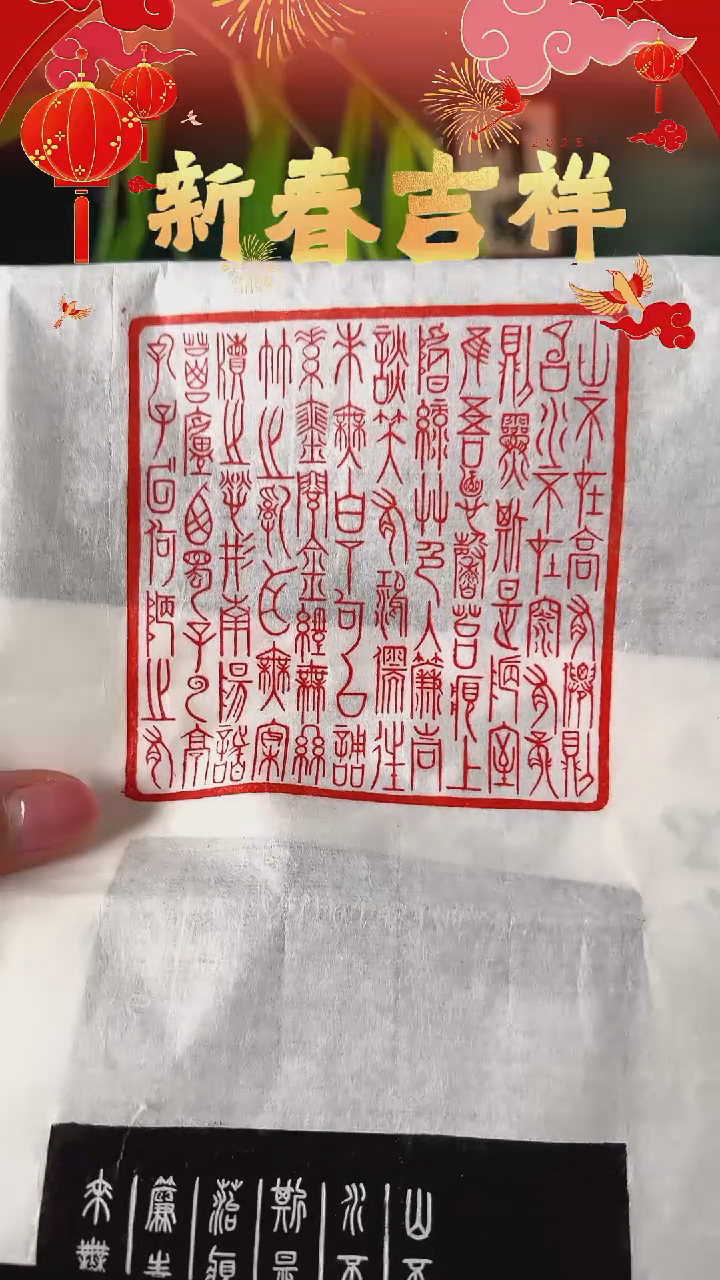 2025
新春吉祥
山不在高有僊則
名水不在深有龍
則靈斯是陋室
惟吾德馨苔痕上
階綠艸色入簾青
談笑有鴻儒往
來無白丁可以調
素琴閱金經無絲
竹之亂耳無案
牘之勞形南陽諸
葛廬西蜀子云亭
孔子曰何陋之有
山不
水不
斯是
苔痕
簾青
來無